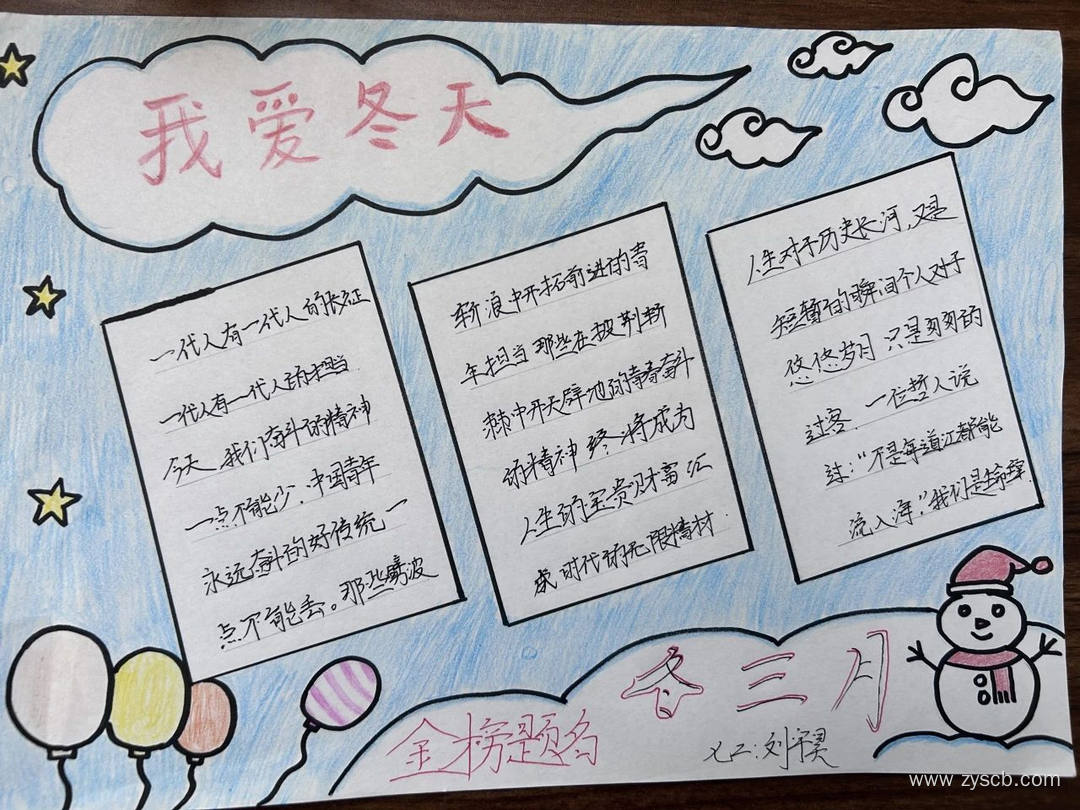 我爱冬天
一代人有一代人的长征
一代人有一代人的担当
今天 我们奋斗的精神
一点不能少，中国青年
永远奋斗的好传统一
点不能丢。那些劈波
斩浪中开拓前进的青
年担当 那些在披荆斩
棘中开天辟地的青春奋斗
的精神 终将成为
人生的宝贵财富 汇
成时代的无限精材
人生对于历史长河，又是
短暂的瞬间个人对于
悠悠岁月 只是匆匆的
过客．一位哲人说
过：“不是每道江都能
流入海．”我们是
冬三月
金榜题名
七二：刘
www.zyscb.com